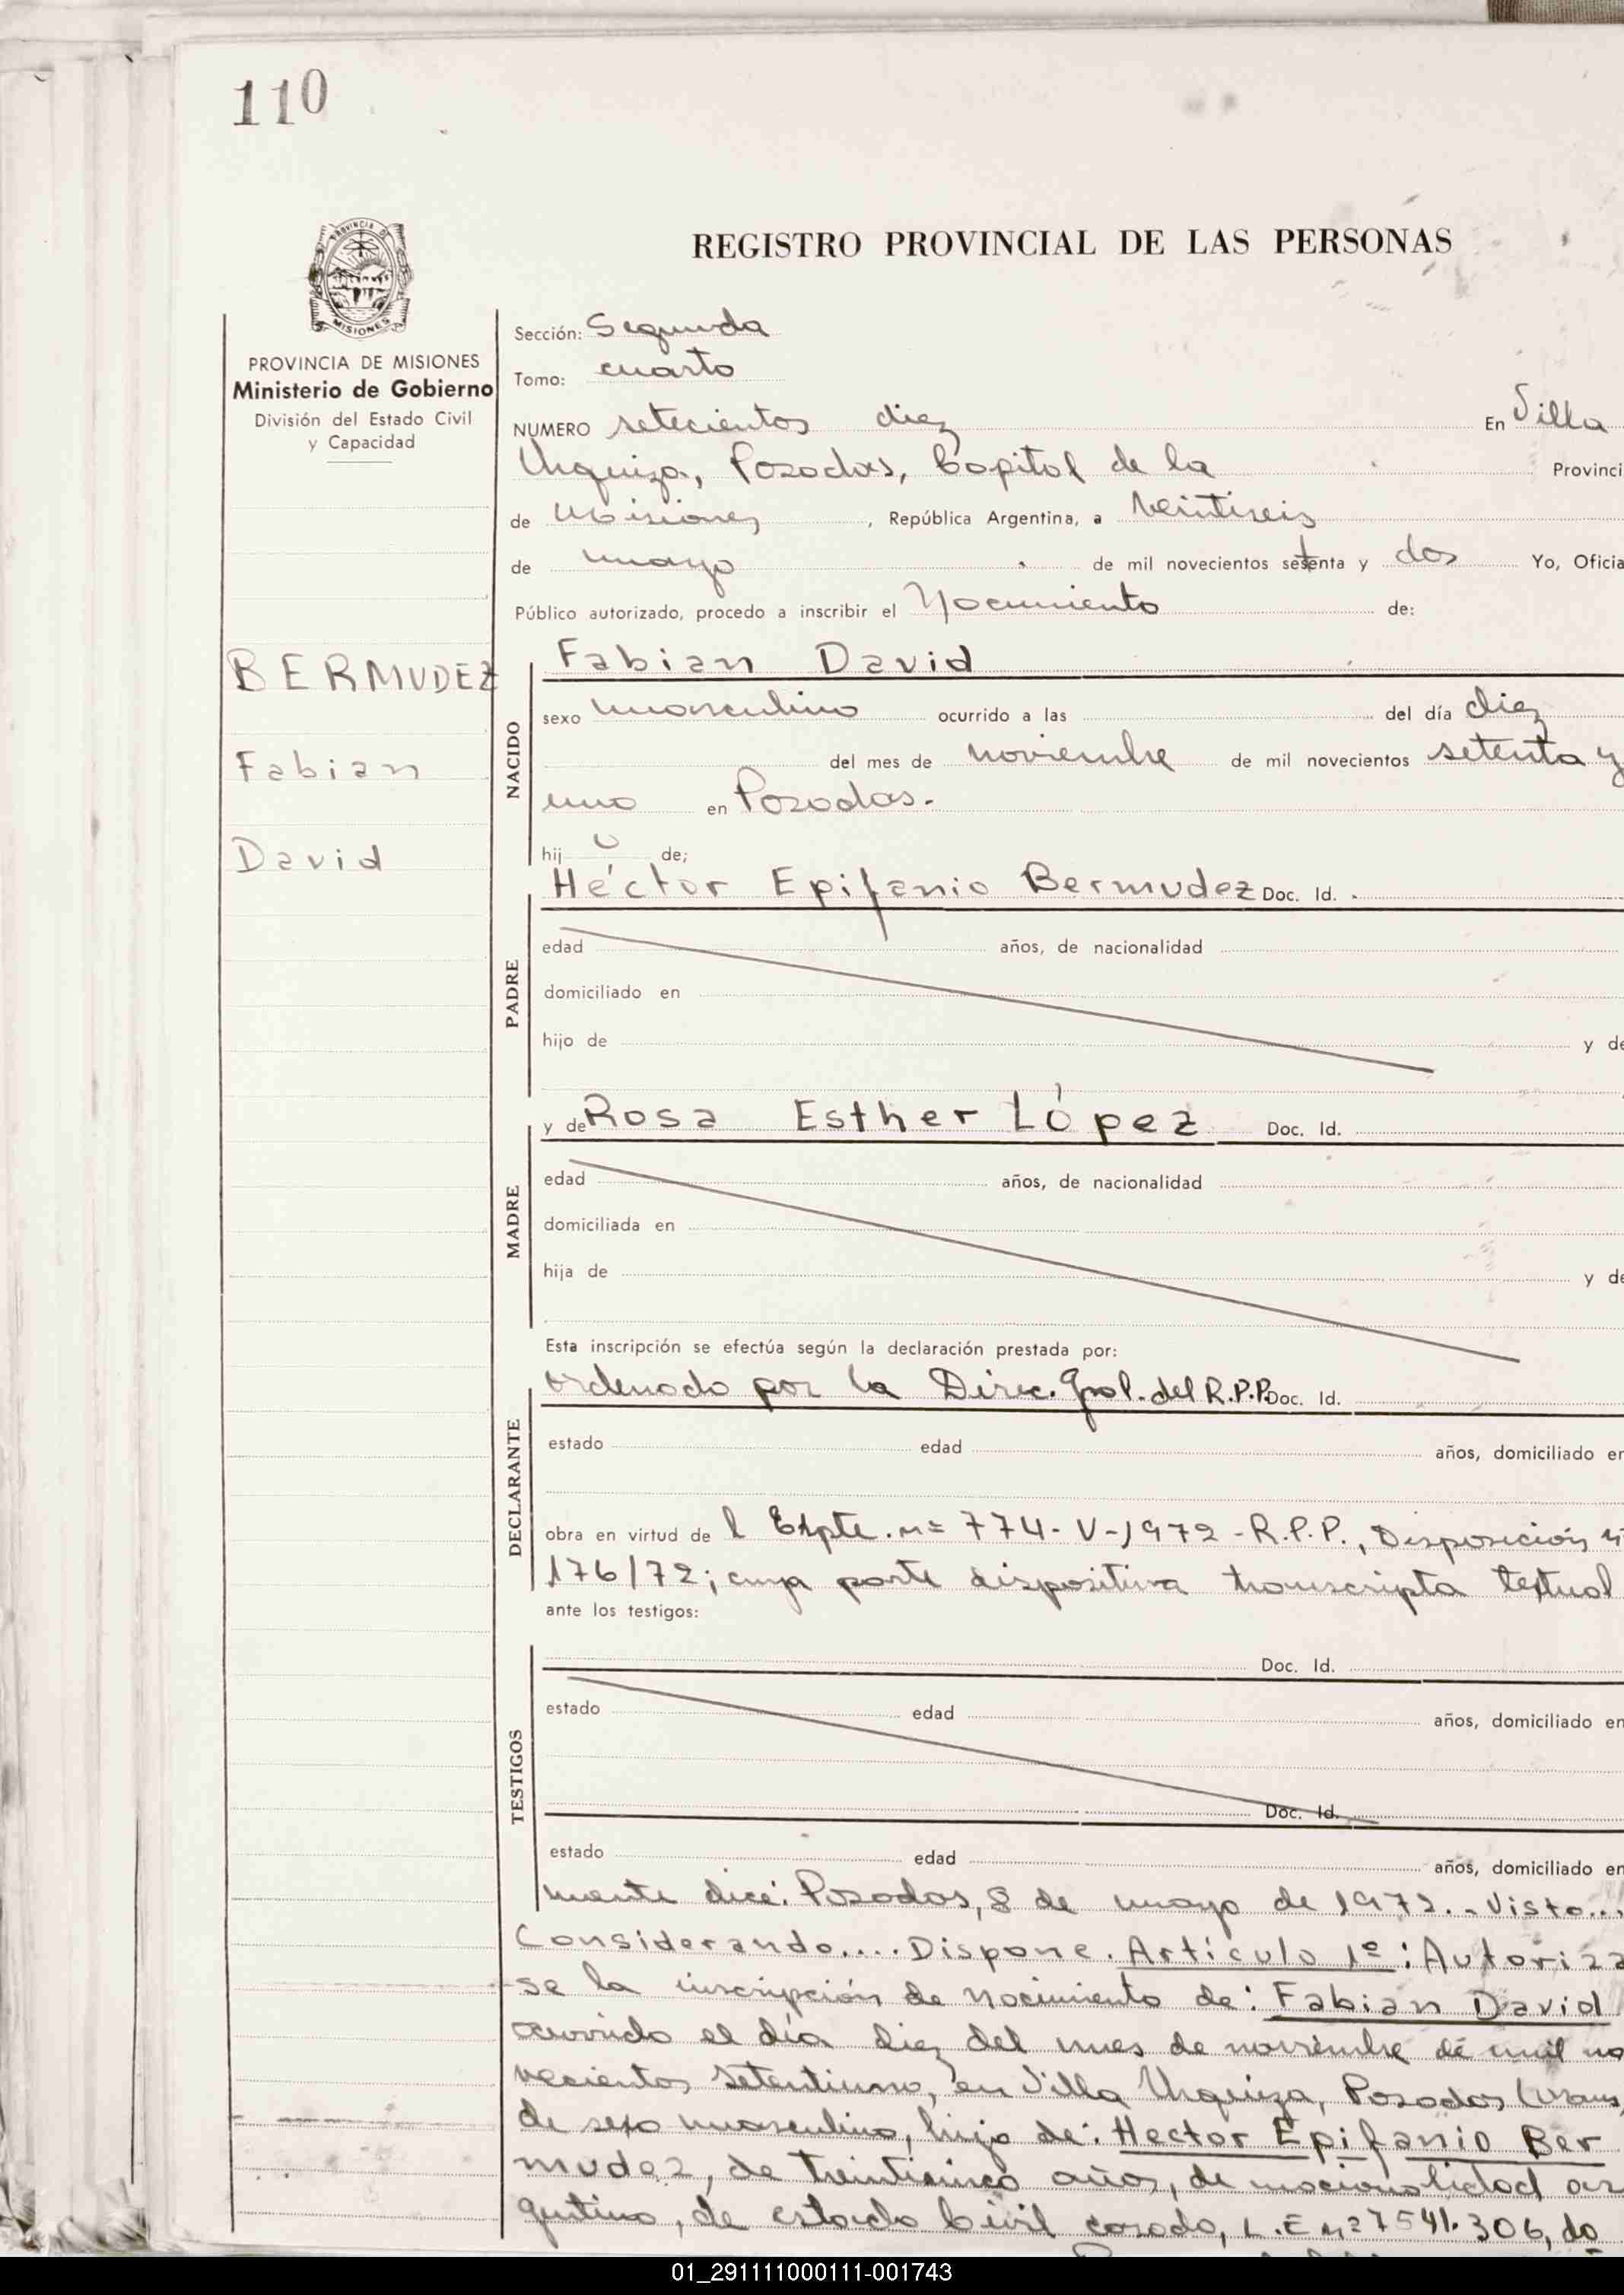 110
PROVINCIA DE
MISIONES
PROVINCIA DE MISIONES
Ministerio de Gobierno
División del Estado Civil
y Capacidad
BERMUDEZ
Fabian
David
REGISTRO PROVINCIAL DE LAS PERSONAS
Sección: Segunda
Tomo: cuarto
NUMERO setecientos diez En Villa
Urquiza, Posadas, Capital de la Provinci
de Misiones, República Argentina, a veintiseis
de mayo de mil novecientos setenta y dos Yo, Oficia
Público autorizado, procedo a inscribir el Nacimiento de:
NACIDO
Fabian David
sexo masculino ocurrido a las del día diez
del mes de noviembre de mil novecientos setenta y
uno en Posadas.
hij o de;
PADRE
Héctor Epifanio Bermudez Doc. Id.
edad años, de nacionalidad
domiciliado en
hijo de y de
MADRE
y de Rosa Esther López Doc. Id.
edad años, de nacionalidad
domiciliada en
hija de y de
Esta inscripción se efectúa según la declaración prestada por:
DECLARANTE
ordenado por la Direc. Gral. del R.P.P. Doc. Id.
estado edad años, domiciliado en
obra en virtud de l Expte. nº 774-V-1972-R.P.P., Disposición
176/72; cuya parte dispositiva transcripta textual
ante los testigos:
TESTIGOS
Doc. Id.
estado edad años, domiciliado en
Doc. Id.
estado edad años, domiciliado en
mente dice: Posadas, 8 de mayo de 1972.- Visto...
Considerando.... Dispone. Artículo 1º: Autoriza
se la inscripción de nacimiento de: Fabian David
ocurrido el día diez del mes de noviembre de mil no
vecientos setentiuno, en Villa Urquiza, Posadas
de sexo masculino, hijo de: Hector Epifanio Ber
mudez, de treinticinco años, de nacionalidad ar
gentino, de estado civil casado, L.E nº 7541.306, do
01_291111000111-001743